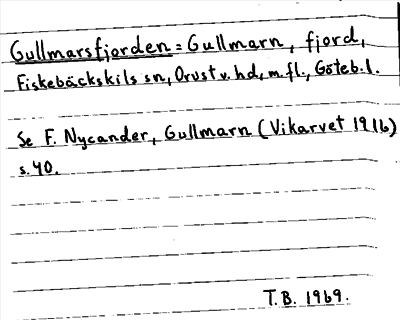 Gullmarsfjorden = Gullmarn, fjord,
Fiskebäckskils sn, Orust v. hd, m.fl., Göteb.l.
Se F. Nycander, Gullmarn (Vikarvet 1916)
s. 40.
T.B. 1969.